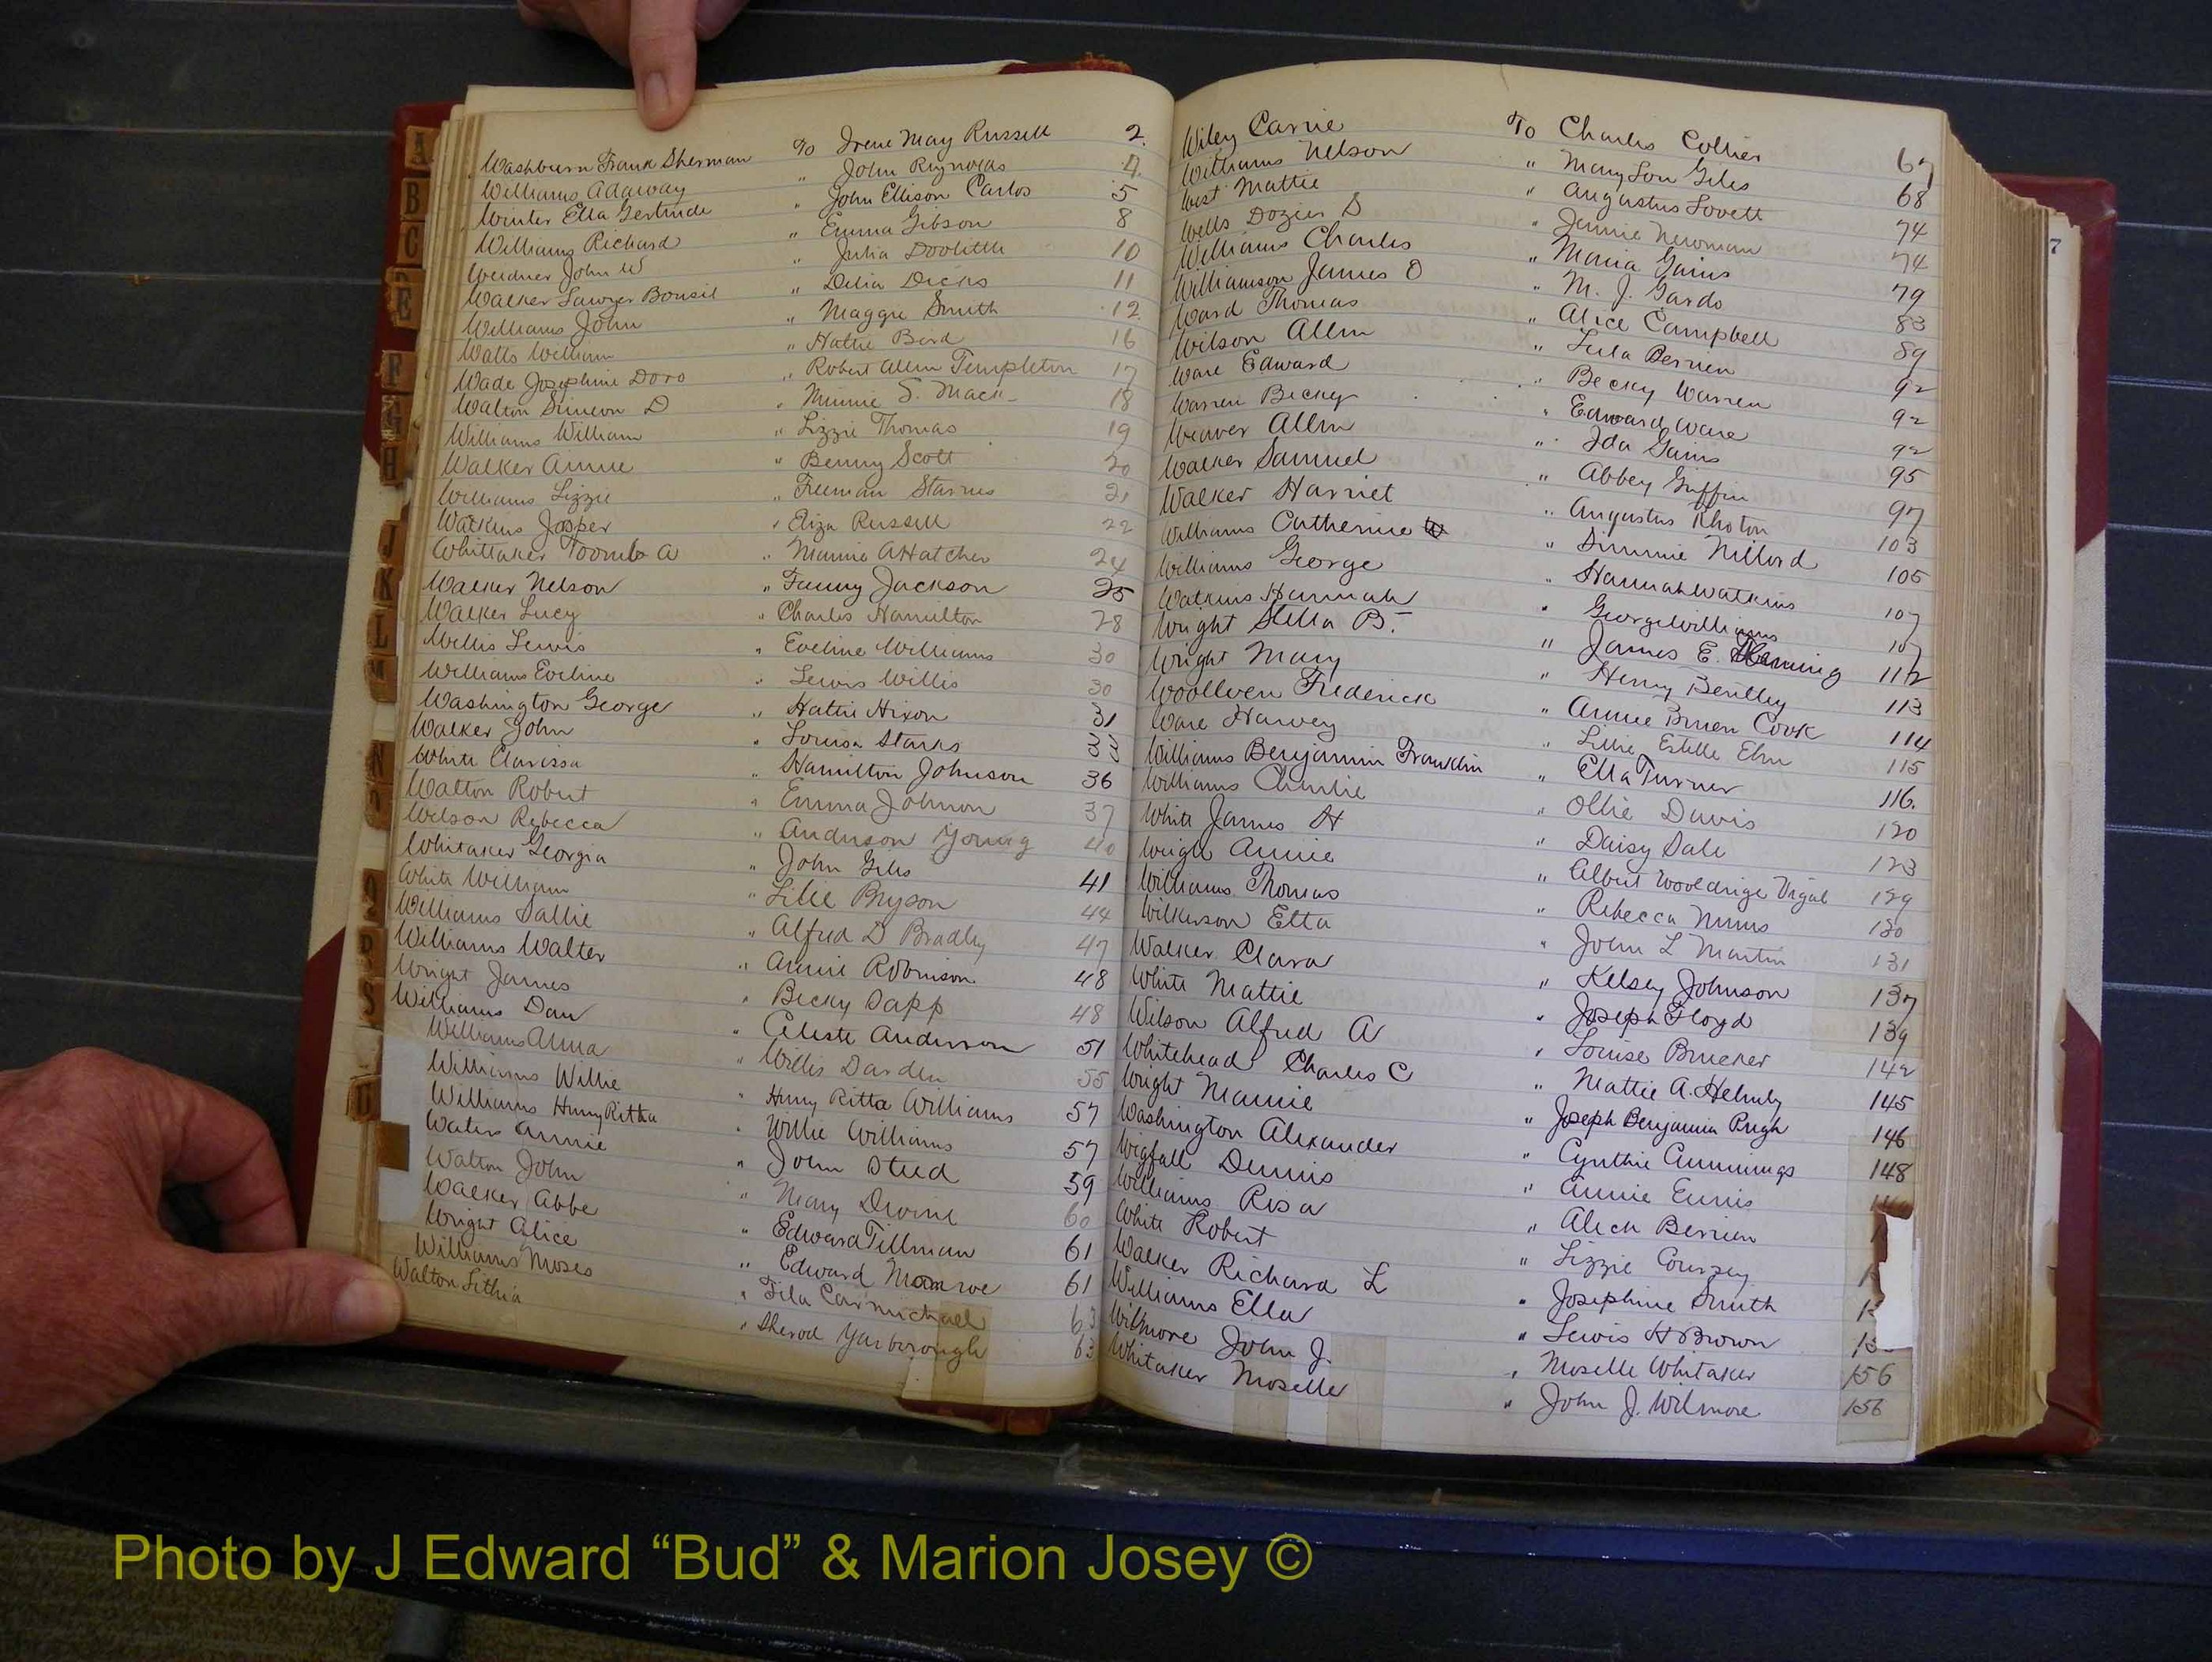 Washburn Frank Sherman To Irene May Russell 2
Williams Adaway " John Reynolds 4
Winter Ella Gertrude " John Ellison Carlos 5
Williams Richard " Emma Gibson 8
Weidner John W " Julia Doolittle 10
Walker Sawyer Bousil " Delia Dicks 11
Williams John " Maggie Smith 12
Watts William " Hattie Bord 16
Wade Josephine Doro " Robert Allen Templeton 17
Walton Simeon D " Minnie S. Mack 18
Williams William " Lizzie Thomas 19
Walker Annie " Benny Scott 20
Williams Lizzie " Freeman Starnes 21
Watkins Josper " Eliza Russell 22
Whittaker Toomb A " Mamie A Hatcher 24
Walker Nelson " Fanny Jackson 25
Walker Lucy " Charles Hamilton 28
Willis Lewis " Eveline Williams 30
Williams Eveline " Lewis Willis 30
Washington George " Hattie Hixon 31
Walker John " Louisa Starks 33
White Clarissa " Hamilton Johnson 36
Walton Robert " Emma Johnson 37
Wilson Rebecca " Anderson Young 40
Whitaker Georgia " John Giles 41
White William " Lillie Bryson 44
Williams Sallie " Alfred D Bradley 47
Williams Walter " Annie Robinson 48
Wright James " Becky Dapp 48
Williams Dan " Celeste Anderson 51
Williams Anna " Willis Darden 55
Williams Willie " Henry Ritta Williams 57
Williams Henry Ritha " Willie Williams 57
Waters Annie " John Steed 59
Walton John " Mary Devine 60
Walker Abbe " Edward Tillman 61
Wright Alice " Edward Monroe 61
Williams Moses " Lila Carmichael 63
Walton Lithia " Sherod Yarborough 63
Wiley Carrie To Charles Collier 67
Williams Nelson " Mary Lou Giles 68
West Mattie " Augustus Lovett 74
Wells Dozier D " Jennie Newman 74
Williams Charles " Maria Gains 79
Williamson James O " M. J. Gardo 83
Ward Thomas " Alice Campbell 89
Wilson Allen " Lula Berrien 92
Ware Edward " Becky Warren 92
Warren Becky " Edward Ware 92
Weaver Allen " Ida Gains 95
Walker Samuel " Abbey Griffin 97
Walker Harriet " Augustus Rhoton 103
Williams Catherine " Simmie Millord 105
Williams George " Hannah Watkins 107
Watkins Hannah " George Williams 107
Wright Stella B. " James E. Fleming 112
Wright Mary " Henry Bentley 113
Woollven Frederick " Annie Bruen Cook 114
Ware Harvey " Lillie Estelle Elm 115
Williams Benjamin Franklin " Ella Turner 116.
Williams Charlie " Ollie Davis 120
White James H " Daisy Dale 123
Wright Annie " Albert Wooldrige Vigal 129
Williams Thomas " Rebecca Mims 130
Wilkerson Etta " John L Martin 131
Walker Clara " Kelsey Johnson 137
White Mattie " Joseph Floyd 139
Wilson Alfred A " Louise Brucker 142
Whitehead Charles C " Mattie A. Helmly 145
Wright Mamie " Joseph Benjamin Pugh 146
Washington Alexander " Cynthie Cummings 148
Wigfall Dennis " Annie Ennis
Williams Rosa " Alick Berrien
White Robert " Lizzie Coursey
Walker Richard L " Josephine Smith
Williams Ella " Lewis H Brown
Wilmore John J. " Moselle Whitaker 156
Whitaker Moselle " John J. Wilmore 156
A
B
C
E
F
G
H
J
K
L
M
N
O
P
S
U
7
Photo by J Edward “Bud” & Marion Josey ©